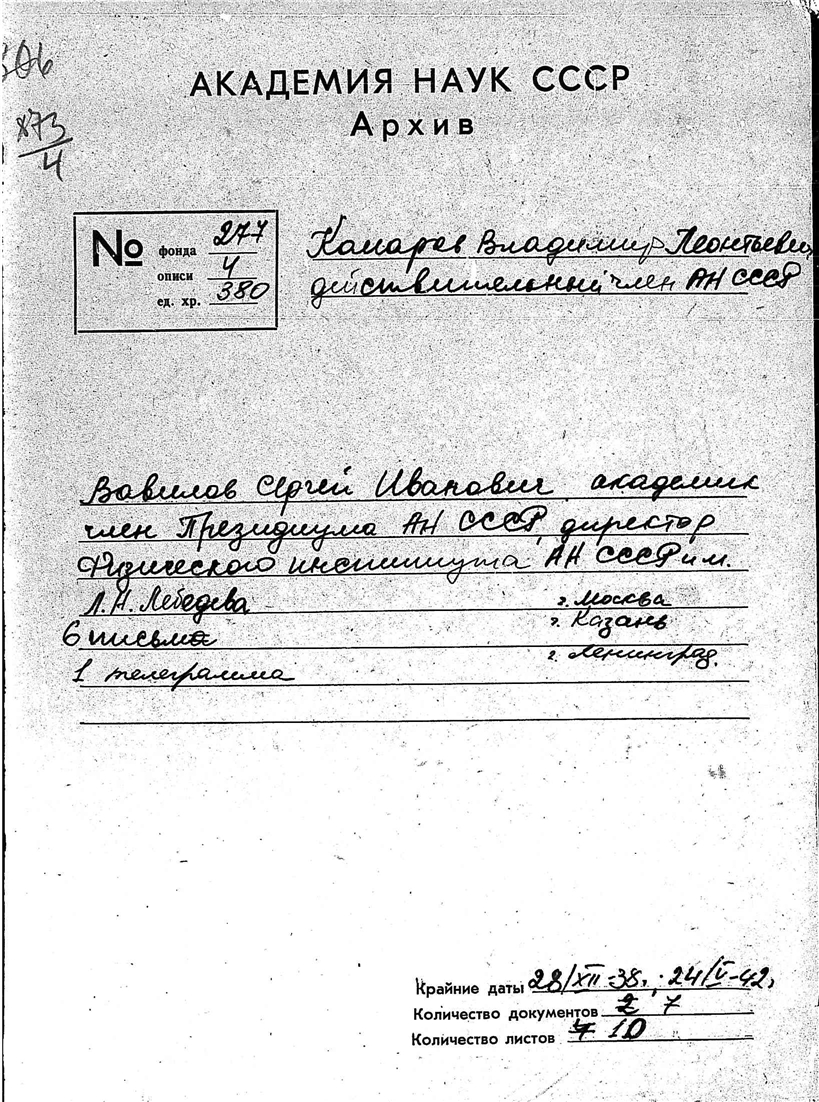 АКАДЕМИЯ НАУК СССР
Архив
873
4
№
фонда 277
описи 4
ед. хр. 380
Комаров Владимир Леонтьевич
действительный член АН СССР
Вавилов Сергей Иванович академик
член Президиума АН СССР, директор
Физического института АН СССР им.
П.Н. Лебедева г. Москва
г. Казань
6 письма
г. Ленинград.
1 телеграмма
Крайние даты 28/XII-38, 24/V-42,
Количество документов 2 7
Количество листов 4 10